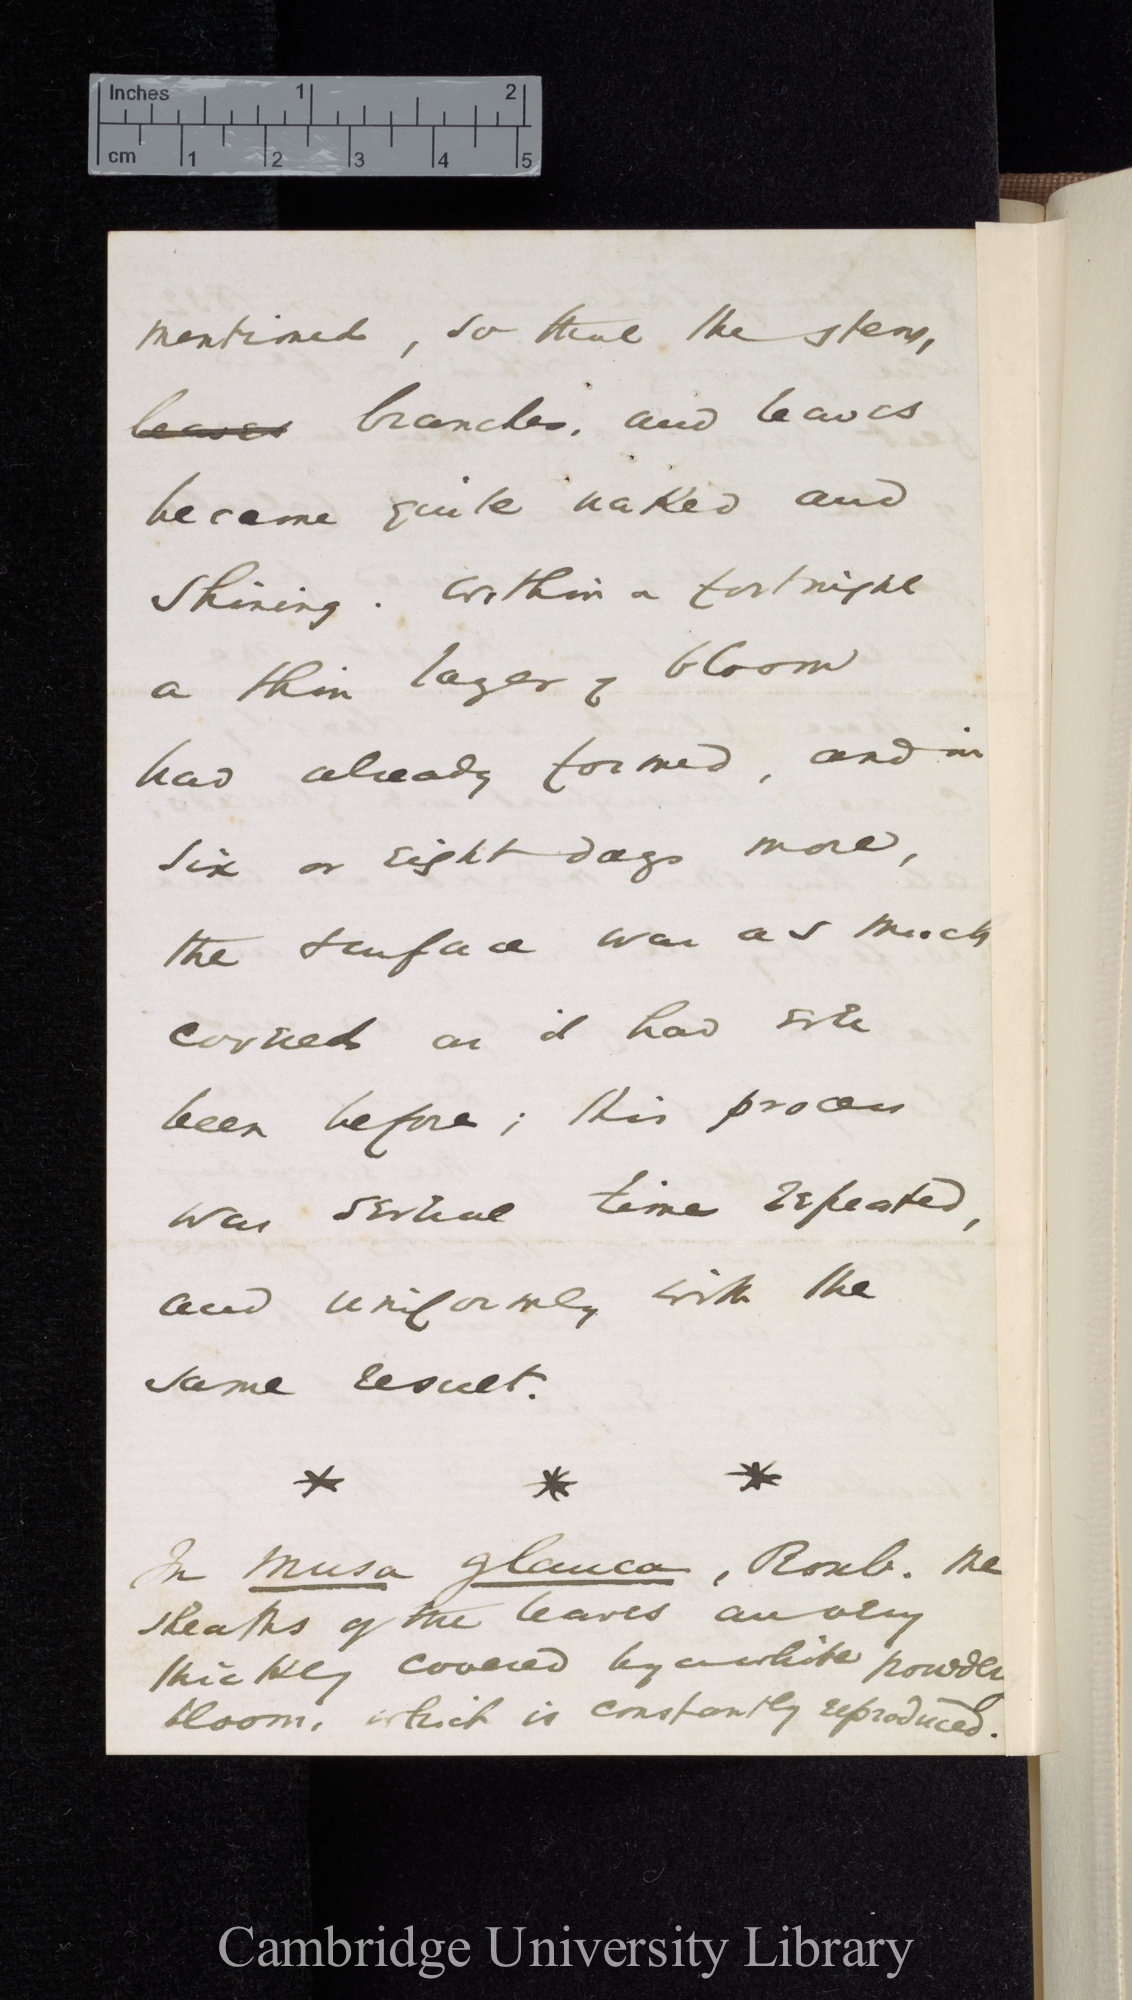 Inches 1 2
cm 1 2 3 4 5
mentioned, so that the stems,
leaves branches, and leaves
became quite naked and
shining. Within a fortnight
a thin layer of bloom
had already formed, and in
six or eight days more,
the surface was as much
covered as it had ever
been before; this process
was several time repeated,
and uniformly with the
same result.
* * *
In Musa glauca, Roxb. the
sheaths of the leaves are very
thickly covered by a white powdery
bloom, which is constantly reproduced.
Cambridge University Library